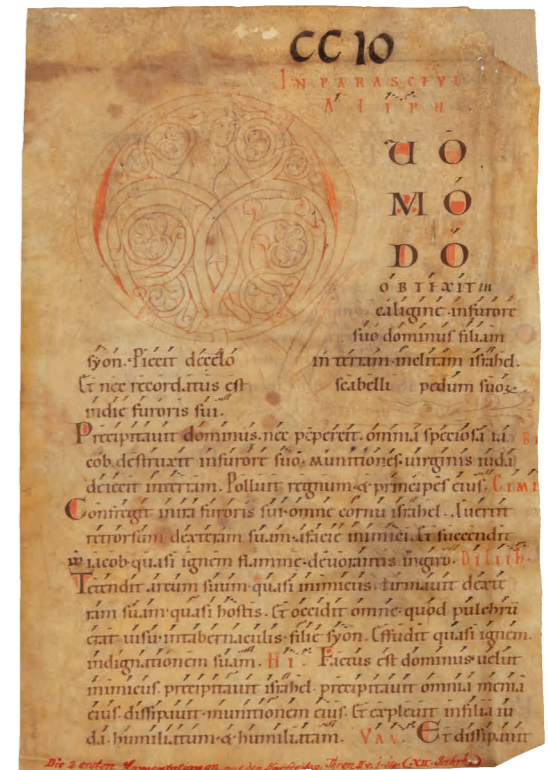 LECTIO
IN PARASCEVE
ALEPH
UO
MO
DO
OBTEXIT in
caligine in furore
suo dominus filiam
syon. Piecit de celo in terram inclitam israhel.
Et nec recordatus est scabelli pedum suoꝝ
in die furoris sui.
Precipitavit dominus. nec pepercit. omnia speciosa ia
cob. destruxit in furore suo. munitiones virginis iuda
deiecit in terram. Polluit regnum. & principes eius. GIMEL
Confregit in ira furoris sui omne cornu israhel. Avertit
retrorsum dexteram suam. a facie inimici. Et succendit
in iacob quasi ignem flamme devorantis in gyro. Deleth.
Tetendit arcum suum quasi inimicus. firmavit dexte
ram suam quasi hostis. Et occidit omne quod pulchrū
erat visu in tabernaculis filie syon. Effudit quasi ignem
indignationem suam. He. Factus est dominus velut
inimicus. precipitavit israhel. precipitavit omnia menia
eius. dissipavit munitionem eius. Et explevit in filia iu
da. humilitatum & humilitatam. Vav. Et dissipavit
Die 2 ersten Lamentationen aus der Karfreitag. Thren II v. 1- (XII. Jahrh.)